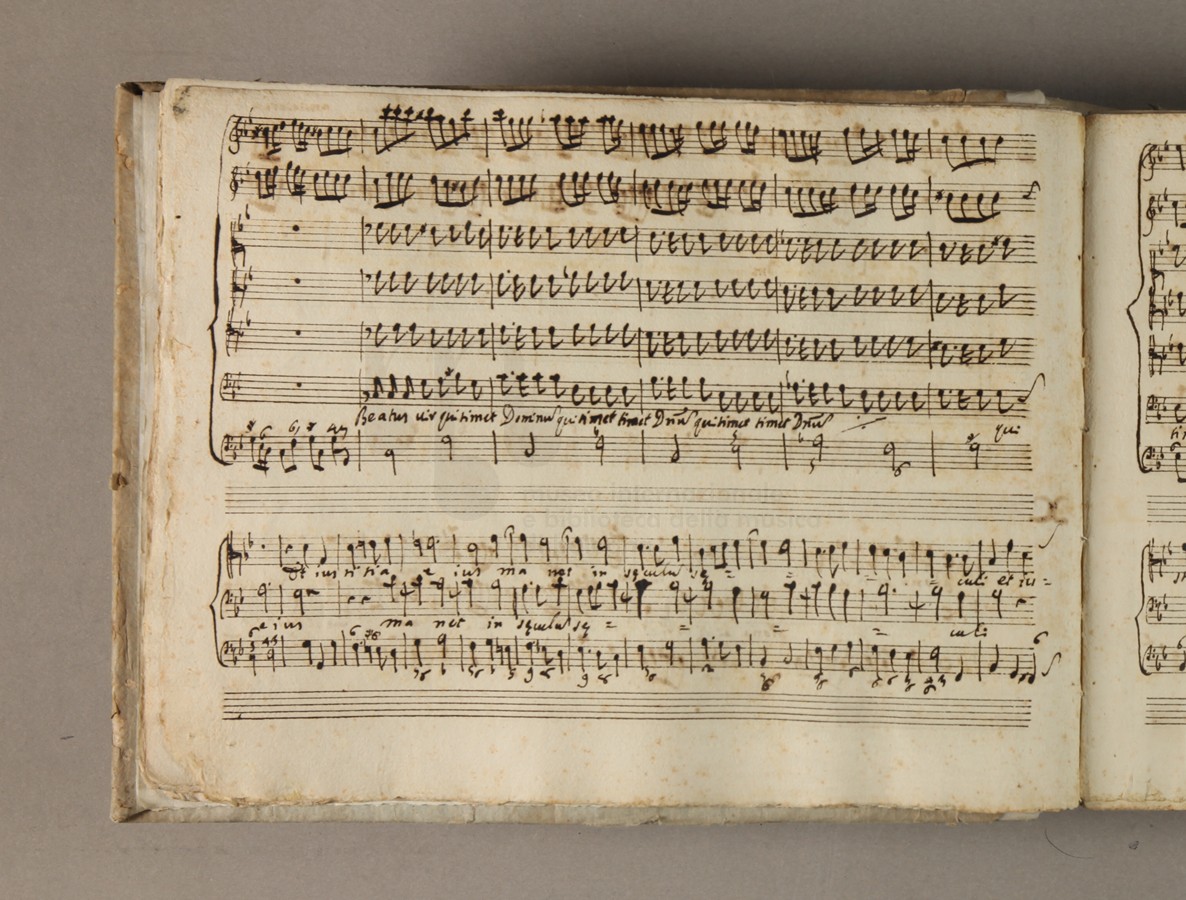 Beatus vir qui timet Dominus qui timet timet Dnũs qui timet timet Dnũs
qui
museo internazionale
e biblioteca della musica
et iustitia eius ma net in sęculũ sę = = = = culi et ius =
eius ma net in sęculũ sę = = = = culi